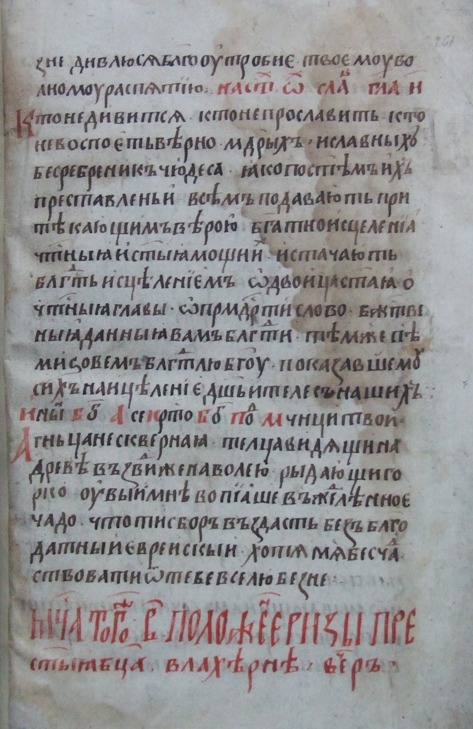 зне дивлюся бл҃гоѹтробие твоемѹ во
лномѹ распятїю. на ст҃ ѿ сла гла и
Кто не дивится. кто не прославить. кто
не воспоеть вѣрно мѹдрыхъ. и славныхъ
бесребреникъ чюдеса. яко по ст҃ѣмъ ихъ
преставленьи. всѣмъ подавають при
тѣкающимъ вѣрою. бг҃атно исцеленїа
чт҃ныя и ст҃ыя мощии. истачають
блг҃ть исцѣленїемъ. ѿ двоица ст҃аю о
чт҃ныя главы. ѿ прм҃дрти слово. бжт҃вы
ныя данныя вамъ блг҃ти. тѣмже пѣ
ми зовемъ блг҃олюбцѹ. показавшемѹ
сихъ на ицѣленїе дш҃ь и телесъ нашихъ.
ины б҃ О се крто б҃ По м҃чнци твои
Агньца нескверная телца видящи на
древѣ въздвижена волею. рыдающи го
рко. ѹвыи мнѣ вопїаше въжделѣнное
чадо. что ти сборъ въздасть безъ блг҃о
датныи еврейскыи. хотя мя бесча
ствовати ѿ тебе вселюбезне.
м҃ца того в҃ положение ризы пре
ст҃ыя бц҃а влахѣрнѣ. вечеръ.